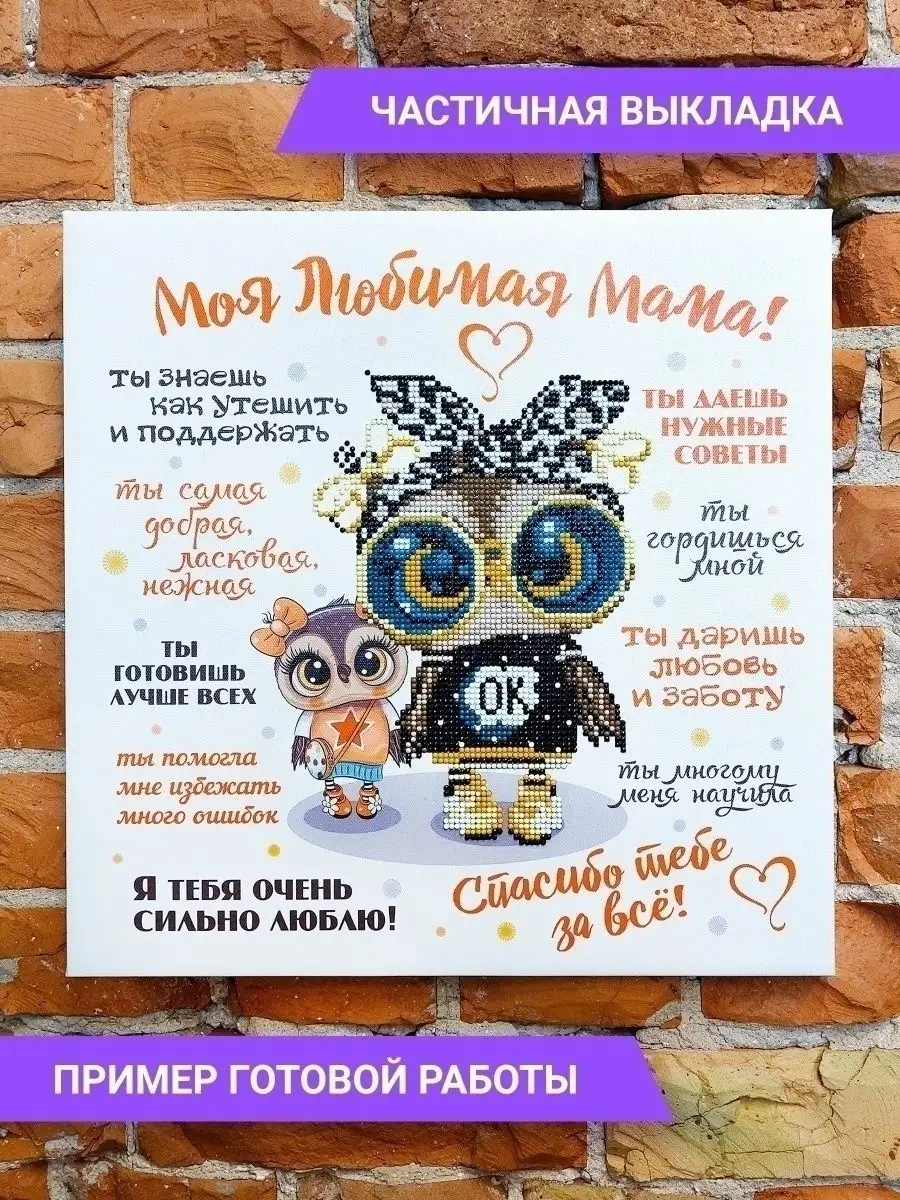 ЧАСТИЧНАЯ ВЫКЛАДКА
Моя Любимая Мама!
ты знаешь
как утешить
и поддержать
ты самая
добрая,
ласковая,
нежная
ты
готовишь
лучше всех
ты помогла
мне избежать
много ошибок
Я тебя очень
сильно люблю!
OK
ты даешь
нужные
советы
ты
гордишься
мной
ты даришь
любовь
и заботу
ты многому
меня научила
Спасибо тебе
за всё!
ПРИМЕР ГОТОВОЙ РАБОТЫ